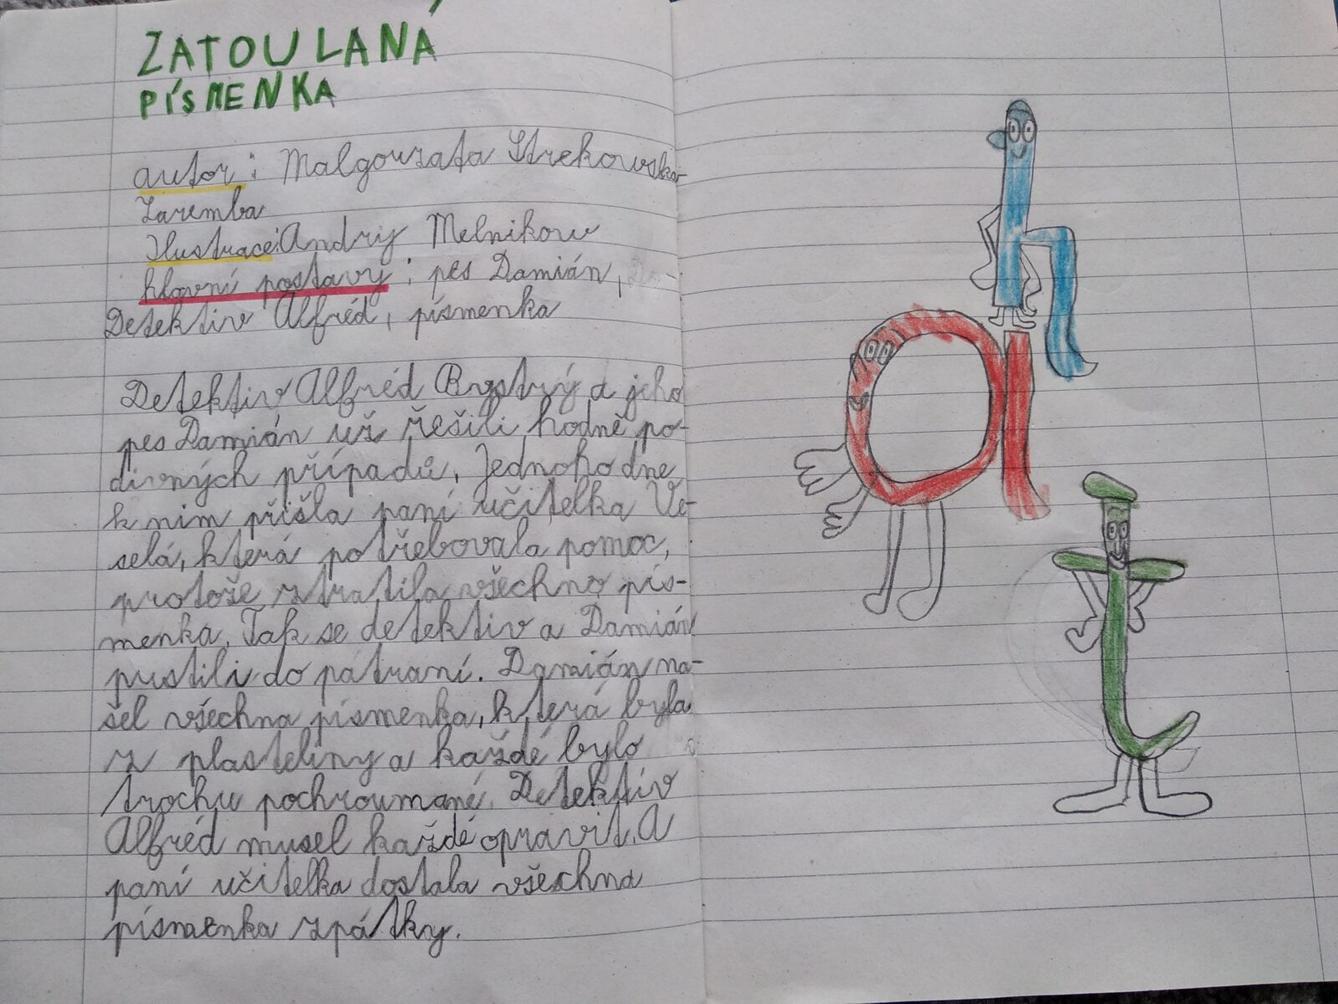 ZATOULANÁ
PÍSMENKA
autor: Malgourzata Strekowska-
Zaremba
Ilustrace: Andrij Melnikow
hlavní postavy: pes Damián,
Detektiv Alfréd, písmenka
Detektiv Alfréd Bystrý a jeho
pes Damián už řešili hodně po-
divných případů. Jednoho dne
k nim přišla paní učitelka Ve-
selá, která potřebovala pomoc,
protože ztratila všechno pís-
menka. Tak se detektiv a Damián
pustili do pátraní. Damián na-
šel všechna písmenka, která byla
z plastelíny a každé bylo
trochu pochroumané. Detektiv
Alfréd musel každé opravit. A
paní učitelka dostala všechna
písmenka zpátky.